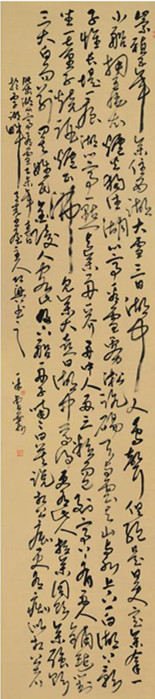 崇禎五年余住西湖大雪三日湖中人鳥聲俱絕是日更定矣余拿一
小船擁毳衣爐火獨往湖心亭看雪霧凇沆碭天與雲與山與水上下一白湖上影
子惟長堤一痕湖心亭一點與余舟一芥舟中人兩三粒而已到亭上有兩人鋪氈對
坐一童子燒酒爐正沸見余大喜曰湖中焉得更有此人拉余同飲余強飲
三大白而別問其姓氏是金陵人客此及下船舟子喃喃曰莫說相公癡更有癡似相公者
張岱湖心亭看雪